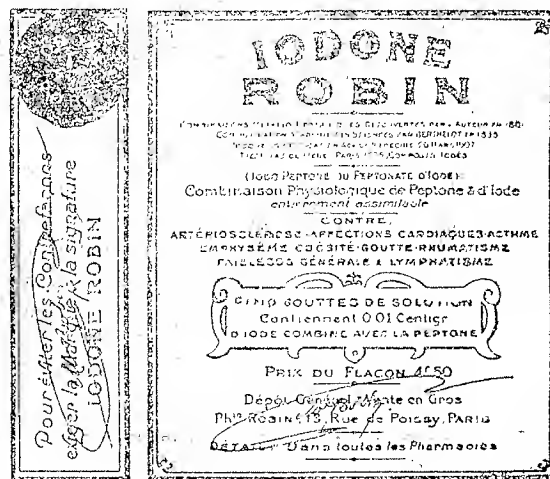 Pour éviter les Contrefaçons
exiger la Marque & la signature
IODONE ROBIN
IODONE
ROBIN
(IODO PEPTONE OU PEPTONATE D'IODE)
Combinaison Physiologique de Peptone & d'Iode
entièrement assimilable
CONTRE,
ARTÉRIOSCLÉROSE-AFFECTIONS CARDIAQUES-ASTHME
EMPHYSÈME OBÉSITÉ-GOUTTE-RHUMATISME
FAIBLESSE GÉNÉRALE & LYMPHATISME
CINQ GOUTTES DE SOLUTION
Contiennent 0.01 Centigr
D'IODE COMBINÉ AVEC LA PEPTONE
PRIX DU FLACON
Dépôt Général, Vente en Gros
Phie ROBIN, 13, Rue de Poissy, PARIS
DÉTAIL: Dans toutes les Pharmacies